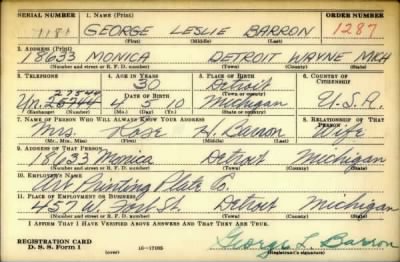 SERIAL NUMBER 1. NAME (Print) ORDER NUMBER
1181 GEORGE LESLIE BARRON 1287
(First) (Middle) (Last)
2. ADDRESS (Print)
18633 MONICA DETROIT WAYNE MICH
(Number and street or R. F. D. number) (Town) (County) (State)
3. TELEPHONE 4. AGE IN YEARS 5. PLACE OF BIRTH 6. COUNTRY OF CITIZENSHIP
30 Detroit
27544 DATE OF BIRTH (Town or county)
Un. 4 5 10 Michigan U.S.A.
(Exchange) (Number) (Mo.) (Day) (Yr.) (State or country)
7. NAME OF PERSON WHO WILL ALWAYS KNOW YOUR ADDRESS 8. RELATIONSHIP OF THAT PERSON
Mrs. Rose H. Barron Wife
(Mr., Mrs., Miss) (First) (Middle) (Last)
9. ADDRESS OF THAT PERSON
18633 Monica Detroit Michigan
(Number and street or R. F. D. number) (Town) (County) (State)
10. EMPLOYER'S NAME
Art Printing Plate Co.
11. PLACE OF EMPLOYMENT OR BUSINESS
457 W. Fort St. Detroit Michigan
(Number and street or R. F. D. number) (Town) (County) (State)
I AFFIRM THAT I HAVE VERIFIED ABOVE ANSWERS AND THAT THEY ARE TRUE.
REGISTRATION CARD
D. S. S. Form 1 (over) 16-17105 George L. Barron
(Registrant's signature)